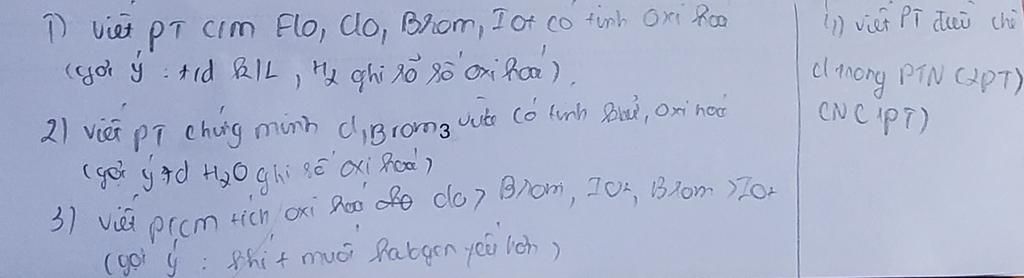 1) viết PT c/m Flo, Clo, Brom, Iot có tính oxi hoá
(gợi ý : t/d K/L, H2 ghi rõ số oxi hoá).
2) viết PT chứng minh cl, Brom vừa có tính khử, oxi hoá
(gợi ý t/d H2O ghi số oxi hoá)
3) viết ptcm tích oxi hoá clo > Brom, Iot, Brom > Iot
(gợi ý : khí + muối halogen yếu hơn)
4) viết PT điều chế
cl trong PTN (2PT)
CNC 1PT)